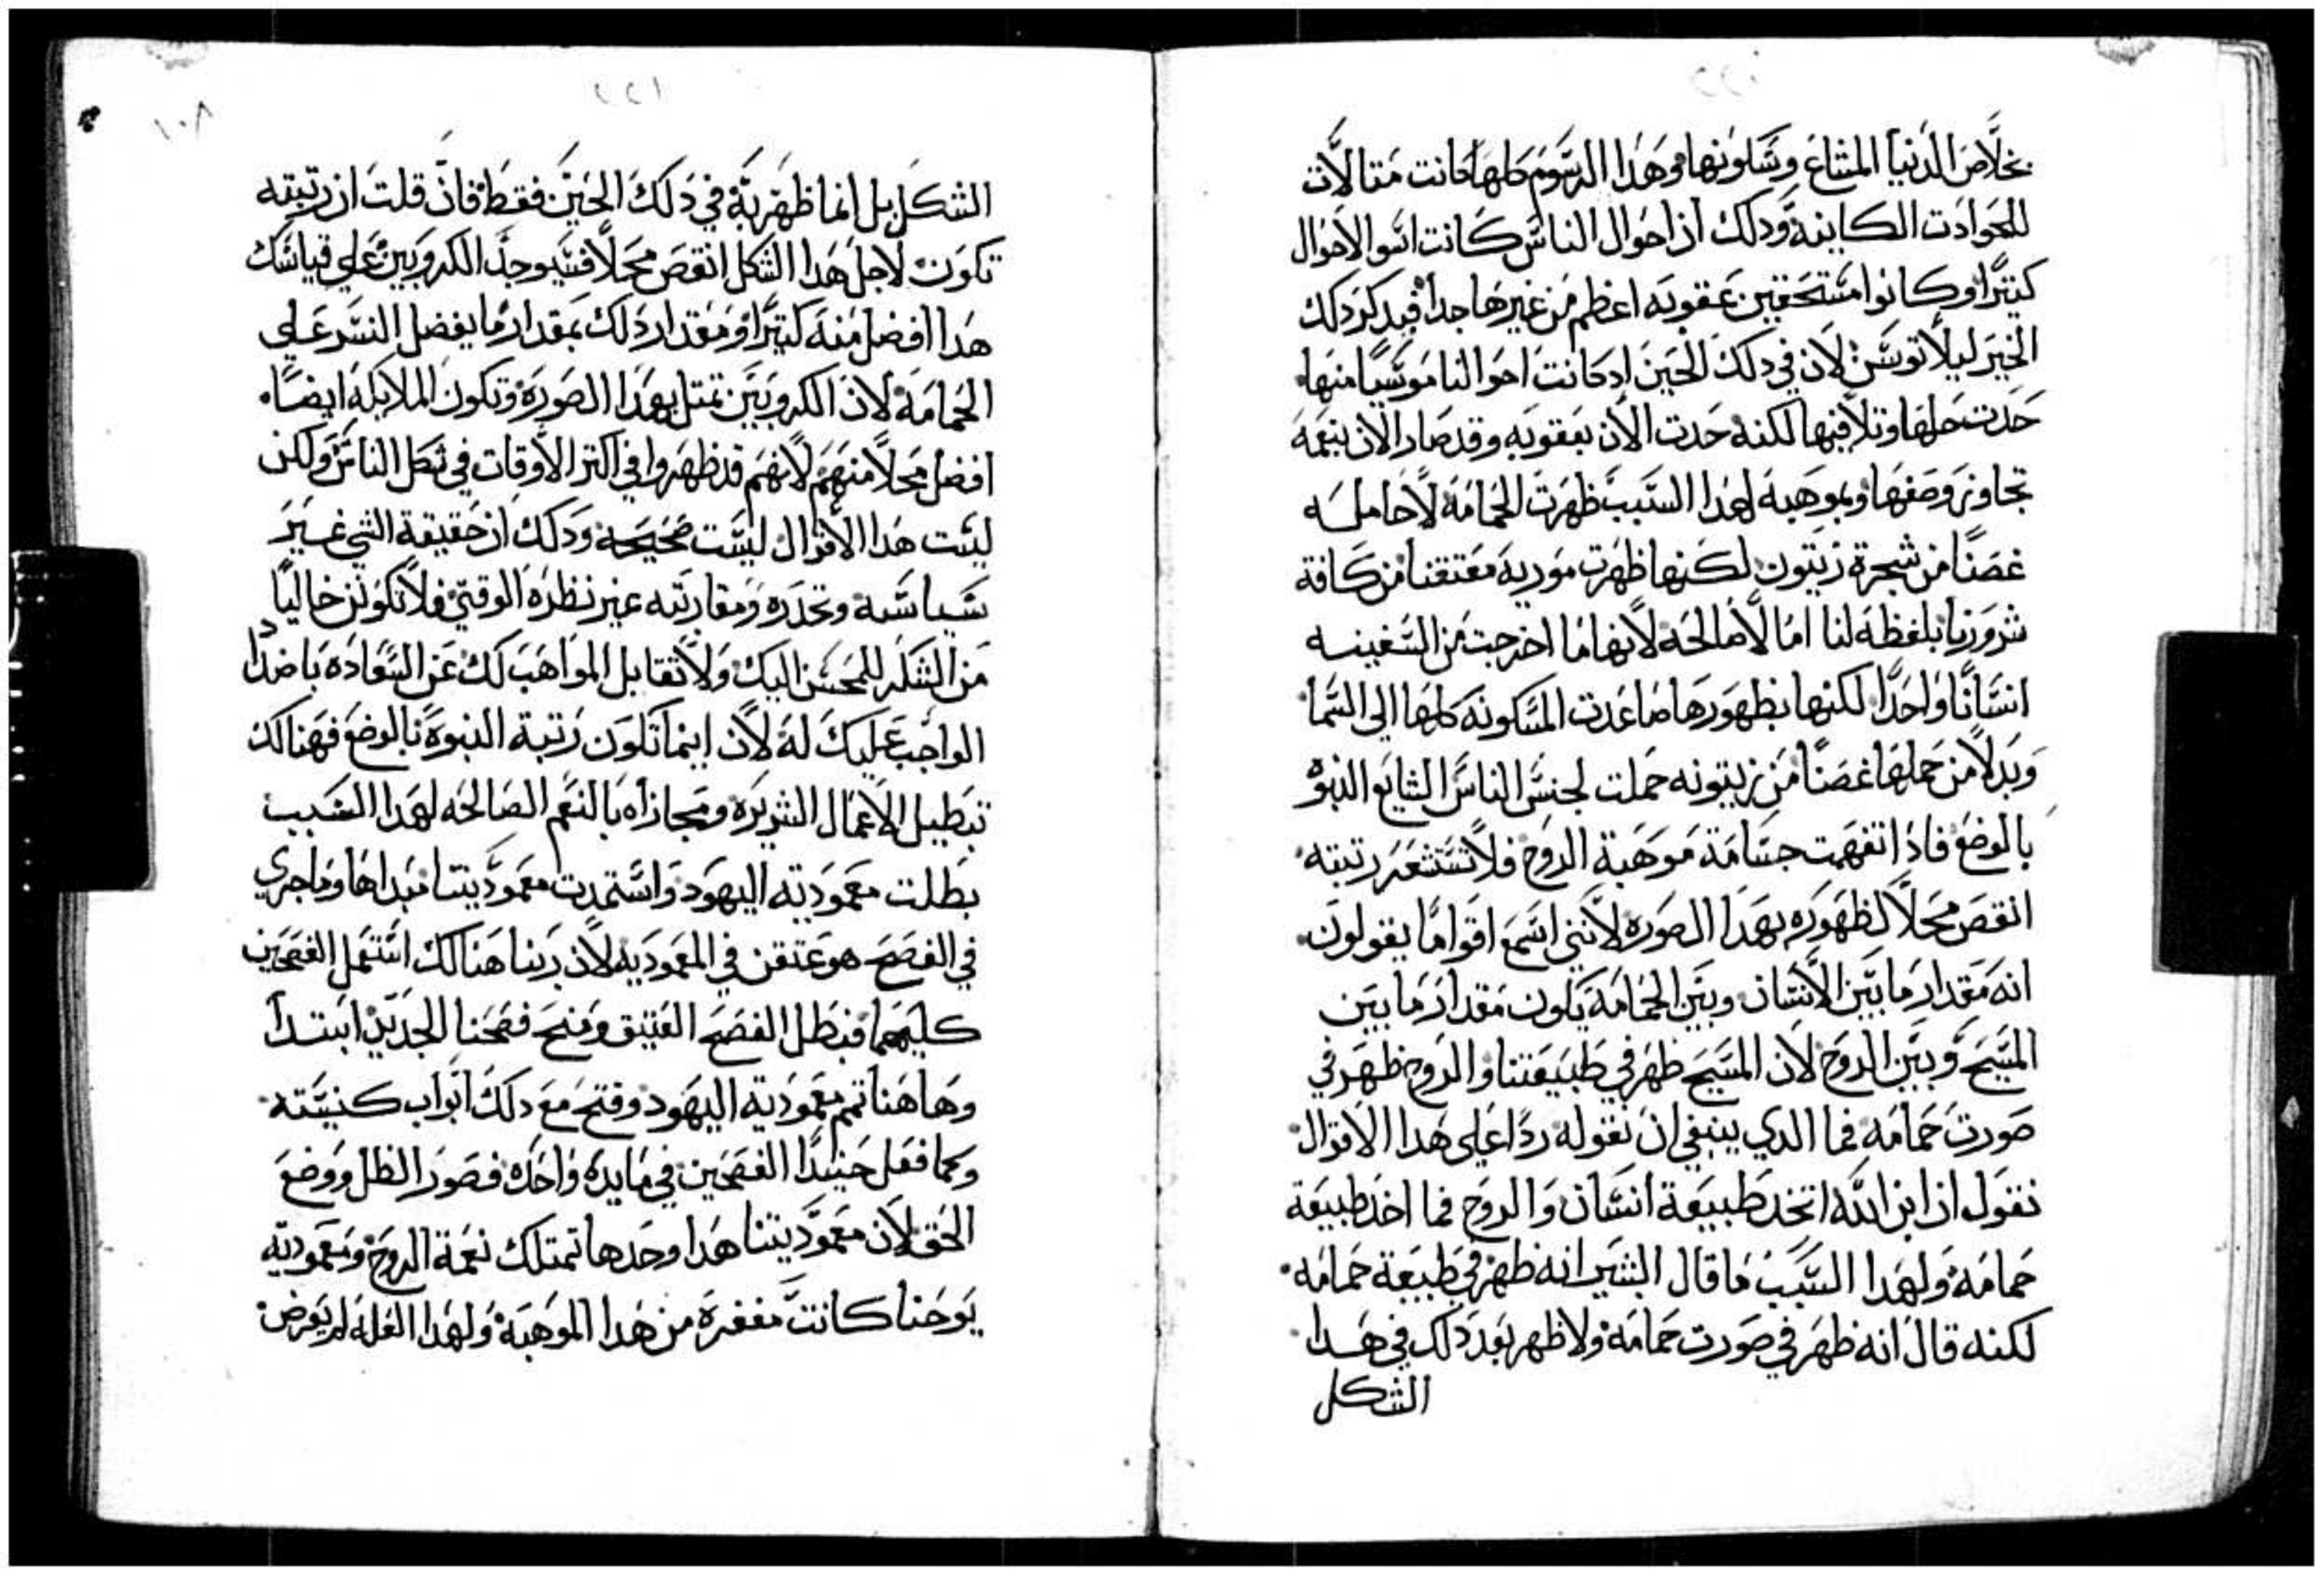 بخلاص الدنيا المشاع وسكونها وهذا الرسوم كلها كانت مثالات
للحوادت الكاينة ودلك ان احوال الناس كانت اسوا الاحوال
كتيرًا وكانوا مستحقين عقوبه اعظم من غيرها جدا فيدكر دلك
الخير ليلا تويس لان في دلك الحين اد كانت احوالنا موييسا منها
حدت حلها وتلافيها لكنه حدت الان بعقوبه وقد صار الان بنعمه
تجاوز وصفها وبموهبه لهدا السبب ظهرت الحمامه لا حامله
غصنًا من شجرة زيتون لكنها ظهرت موريه معتقنا من كافة
شرورنا بلفظه لنا امالا صالحه لانها ما اخرجت من السفينه
انسانًا واحدًا لكنها بظهورها صاعدت المسكونه كلها الي السما
وبدلًا من حملها غصنًا من زيتونه حملت لجنس الناس الشايع البنوه
بالوضع فادا تفهمت جسامة موهبة الروح فلا تستشعر رتبته
انقص محلًا لظهوره بهدا الصوره لانني اسمع اقوامًا يقولون
انه مقدار ما بين الانسان وبين الحمامه يكون مقدار ما بين
المسيح وبين الروح لان المسيح ظهر في طبيعتنا والروح ظهر في
صورت حمامه فما الدي ينبغي ان نقوله ردًا علي هدا الاقوال
نقول ان ابن الله اتخد طبيعة انسان والروح فما اخد طبيعة
حمامه ولهدا السبب ما قال البشير انه ظهر في طبيعة حمامه
لكنه قال انه ظهر في صورت حمامه ولا ظهر بعد دلك في هدا
الشكل
٢٢١
١٠٨
الشكل بل انما ظهر به في دلك الحين فقط فان قلت ان رتبته
تكون لاجل هدا الشكل انقص محلًا فسيوجد الكروبين علي قياسك
هدا افضل منه كتيرًا ومقدار دلك بمقدار ما يفضل النسر علي
الحمامه لان الكروبين تمتل بهدا الصوره وتكون الملايكه ايضًا
افضل محلًا منهم لانهم قد ظهروا في اكتر الاوقات في شكل الناس ولكن
ليست هدا الاقوال ليست صحيحه ودلك ان حقيقة الشي غير
سياسته وتحدره ومقاربته غير نظره الوقتي فلا تكونن خاليًا
من الشكر للمحسن اليك ولا تقابل المواهب لك عن السعاده باضداد
الواجب عليك له لان اينما تكون رتبة البنوه بالوضع فهنالك
تبطيل الاعمال الشريره ومجازاه بالنعم الصالحه لهدا السبب
بطلت معموديته اليهود واستمدت معموديتنا مبداها وما جري
في الفصح هو عتقن في المعموديه لان ربنا هنالك استعمل الفصحين
كليهما فبطل الفصح العتيق ومنح فصحنا الجديد ابتدا
وهاهنا تمم معمودية اليهود وفتح مع دلك ابواب كنيسته
وكما فعل حينيدًا الفصحين في مايده واحده فصور الظل ووضع
الحق لان معموديتنا هدا وحدها تمتلك نعمة الروح ومعموديه
يوحنا كانت مفقره من هدا الموهبه ولهدا العله لم يعرض